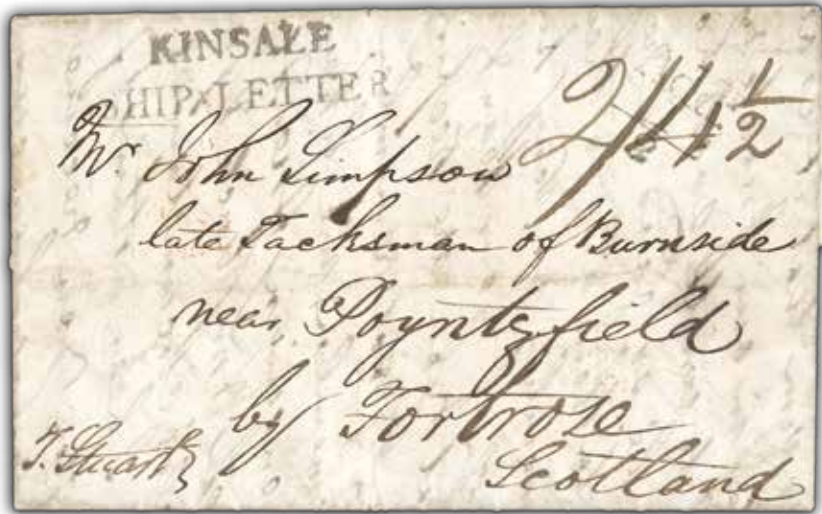 KINSALE
SHIP LETTER
2/4½
Mr. John Simpson
late Tacksman of Burnside
near Poyntzfield
by Fortrose
Scotland